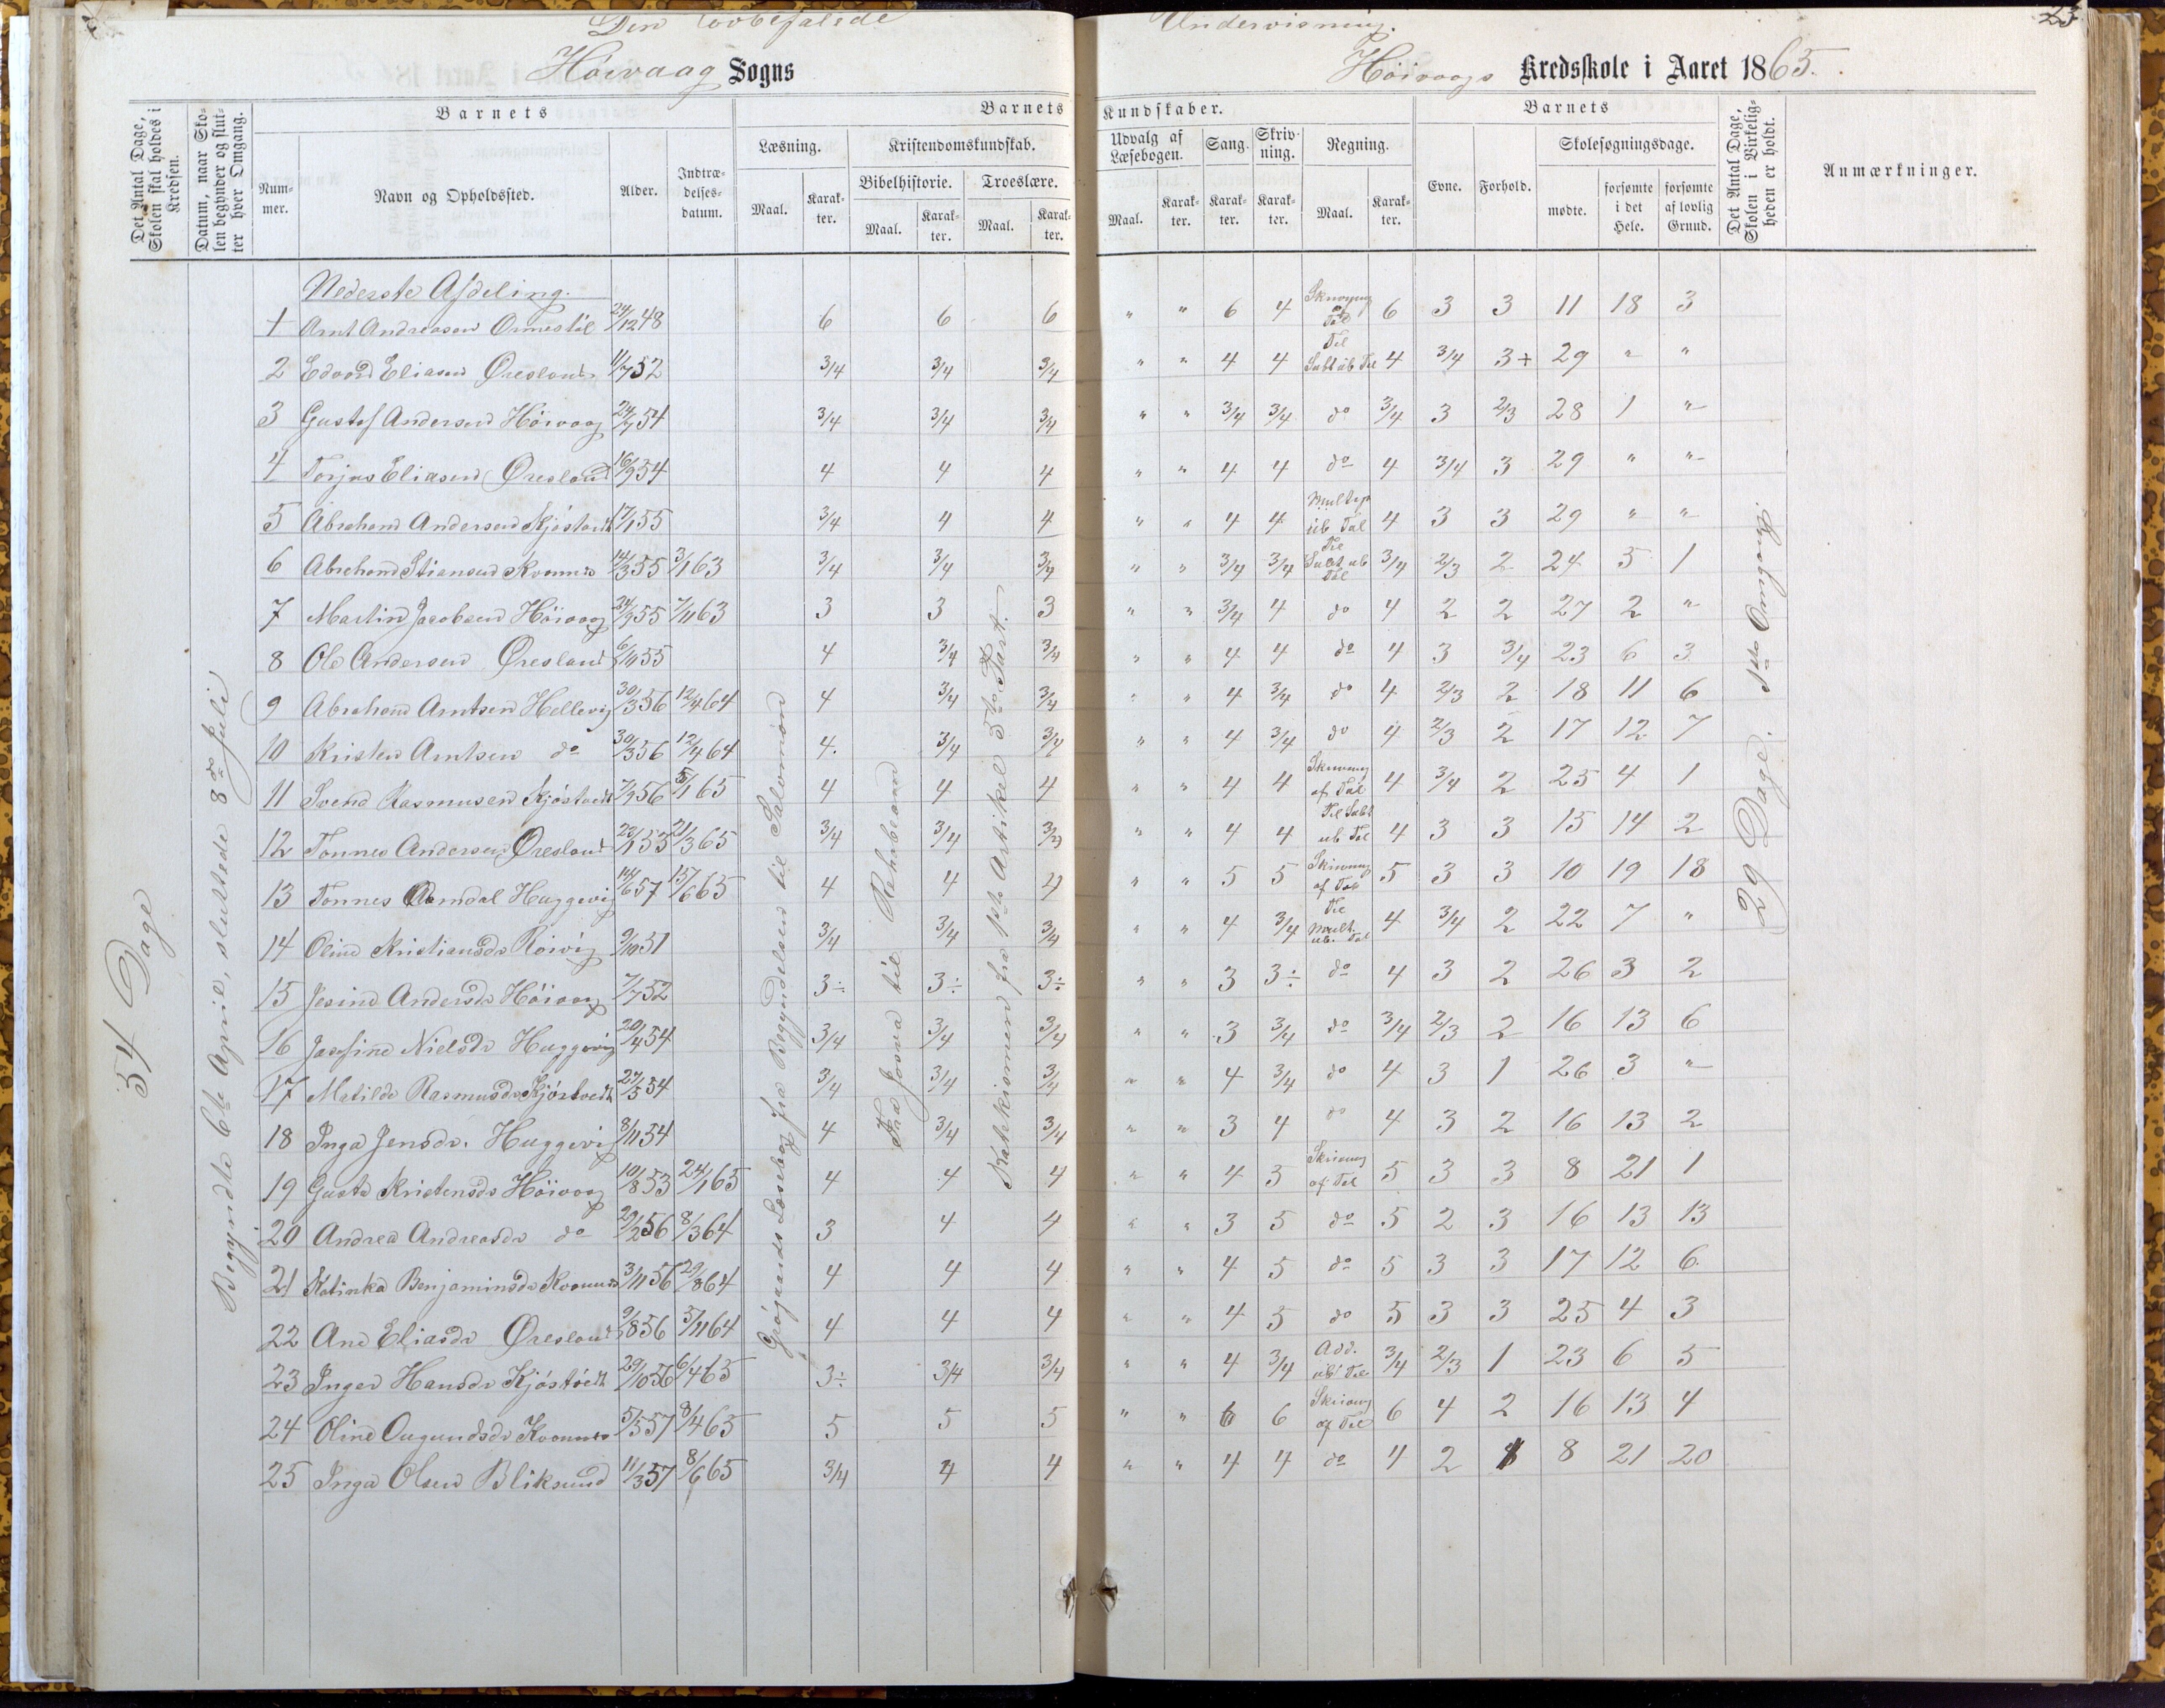 Den lovbefalede Undervisning.
23
Höivaag Sogns Höivaags Kredsskole i Aaret 1865.
Det Antal Dage, Skolen skal holdes i Kredsen.
Datum, naar Skolen begynder og slutter hver Omgang.
Barnets
Nummer.
Navn og Opholdssted.
Alder.
Indtrædelsesdatum.
Barnets Kundskaber.
Læsning.
Maal. Karakter.
Kristendomskundskab.
Bibelhistorie.
Maal. Karakter.
Troeslære.
Maal. Karakter.
Udvalg af Læsebogen.
Maal. Karakter.
Sang.
Karakter.
Skrivning.
Karakter.
Regning.
Maal. Karakter.
Barnets
Evne. Forhold.
Skolesøgningsdage.
mødte. forsømte i det Hele. forsømte af lovlig Grund.
Det Antal Dage, Skolen i Virkeligheden er holdt.
Anmærkninger.
54 Dage
Begyndte 6te April, sluttede 8de Juli
Læsebog fra Begyndelsen til Salomon
Fra Josva til Rehabeam
Katekismen fra 1ste Artikel 5te Part.
29 Dage. 1ste Omgang.
Nederste Afdeling.
1 Arnt Andreasen Ormestöl 24/12 48 6 6 6 " " 6 4 Skrivning af Tal 6 3 3 11 18 3
2 Edvard Eliasen Øresland 11/7 52 3/4 3/4 3/4 " " 4 4 Til Subt ub Tal 4 3/4 3+ 29 " "
3 Gustaf Andersen Höivaag 24/9 54 3/4 3/4 3/4 " " 3/4 3/4 do 3/4 3 2/3 28 1 "
4 Torjus Eliasen Øresland 16/9 54 4 4 4 " " 4 4 do 4 3/4 3 29 " "
5 Abraham Andersen Kjöstvedt 17/1 55 3/4 4 4 " " 4 4 Multip ub Tal 4 3 3 29 " "
6 Abraham Stiansen Kvannes 14/3 55 3/1 63 3/4 3/4 3/4 " " 3/4 3/4 Til Subt ub Tal 3/4 2/3 2 24 5 1
7 Martin Jacobsen Höivaag 24/9 55 7/11 63 3 3 3 " " 3/4 4 do 4 2 2 27 2 "
8 Ole Andersen Øresland 6/11 55 4 3/4 3/4 " " 4 4 do 4 3 3/4 23 6 3
9 Abraham Arntsen Hellevig 30/3 56 12/4 64 4 3/4 3/4 " " 4 3/4 do 4 2/3 2 18 11 6
10 Kristen Arntsen do 30/3 56 12/4 64 4. 3/4 3/4 " " 4 3/4 do 4 2/3 2 17 12 7
11 Svend Rasmusen Kjöstvedt 7/9 56 5/1 65 4 4 4 " " 4 4 Skrivning af Tal 4 3/4 2 25 4 1
12 Tönnes Andersen Øresland 23/1 55 21/3 65 3/4 3/4 3/4 " " 4 4 Til Subt ub Tal 4 3 3 15 14 2
13 Tönnes Aamdal Huggevig 14/6 57 15/6 65 4 4 4 " " 5 5 Skrivning af Tal 5 3 3 10 19 18
14 Oline Kristiansdr Röivig 9/10 51 3/4 3/4 3/4 " " 4 3/4 Til Mult. ub. Tal 4 3/4 2 22 7 "
15 Jesine Andersdr Höivaag 7/7 52 3÷ 3÷ 3÷ " " 3 3÷ do 4 3 2 26 3 2
16 Josefine Nielsdr Huggevig 20/4 54 3/4 3/4 3/4 " " 3 3/4 do 3/4 2/3 2 16 13 6
17 Matilde Rasmusdr Kjöstvedt 27/5 54 3/4 3/4 3/4 " " 4 3/4 do 4 3 1 26 3 "
18 Inga Jensdr. Huggevig 8/11 54 4 3/4 3/4 " " 3 4 do 4 3 2 16 13 2
19 Gusta Kristensdr Höivaag 10/8 53 24/1 65 4 4 4 " " 4 5 Skrivning af Tal 5 3 3 8 21 1
20 Andrea Andreasdr do 29/2 56 8/3 64 3 4 4 " " 3 5 do 5 2 3 16 13 13
21 Katinka Benjaminsdr Kvannes 3/11 56 29/8 64 4 4 4 " " 4 5 do 5 3 3 17 12 6
22 Ane Eliasdr Øresland 9/8 56 5/11 64 4 4 4 " " 4 5 do 5 3 3 25 4 3
23 Inger Hansdr Kjöstvedt 29/10 56 6/4 65 3÷ 3/4 3/4 " " 4 3/4 Add. ub Tal 3/4 2/3 1 23 6 5
24 Oline Ougundsdr Kvannes 5/5 57 8/4 65 5 5 5 " " 6 6 Skrivning af Tal 6 4 2 16 13 4
25 Inga Olsen Bliksund 11/3 57 8/6 65 3/4 4 4 " " 4 4 do 4 2 8 21 20